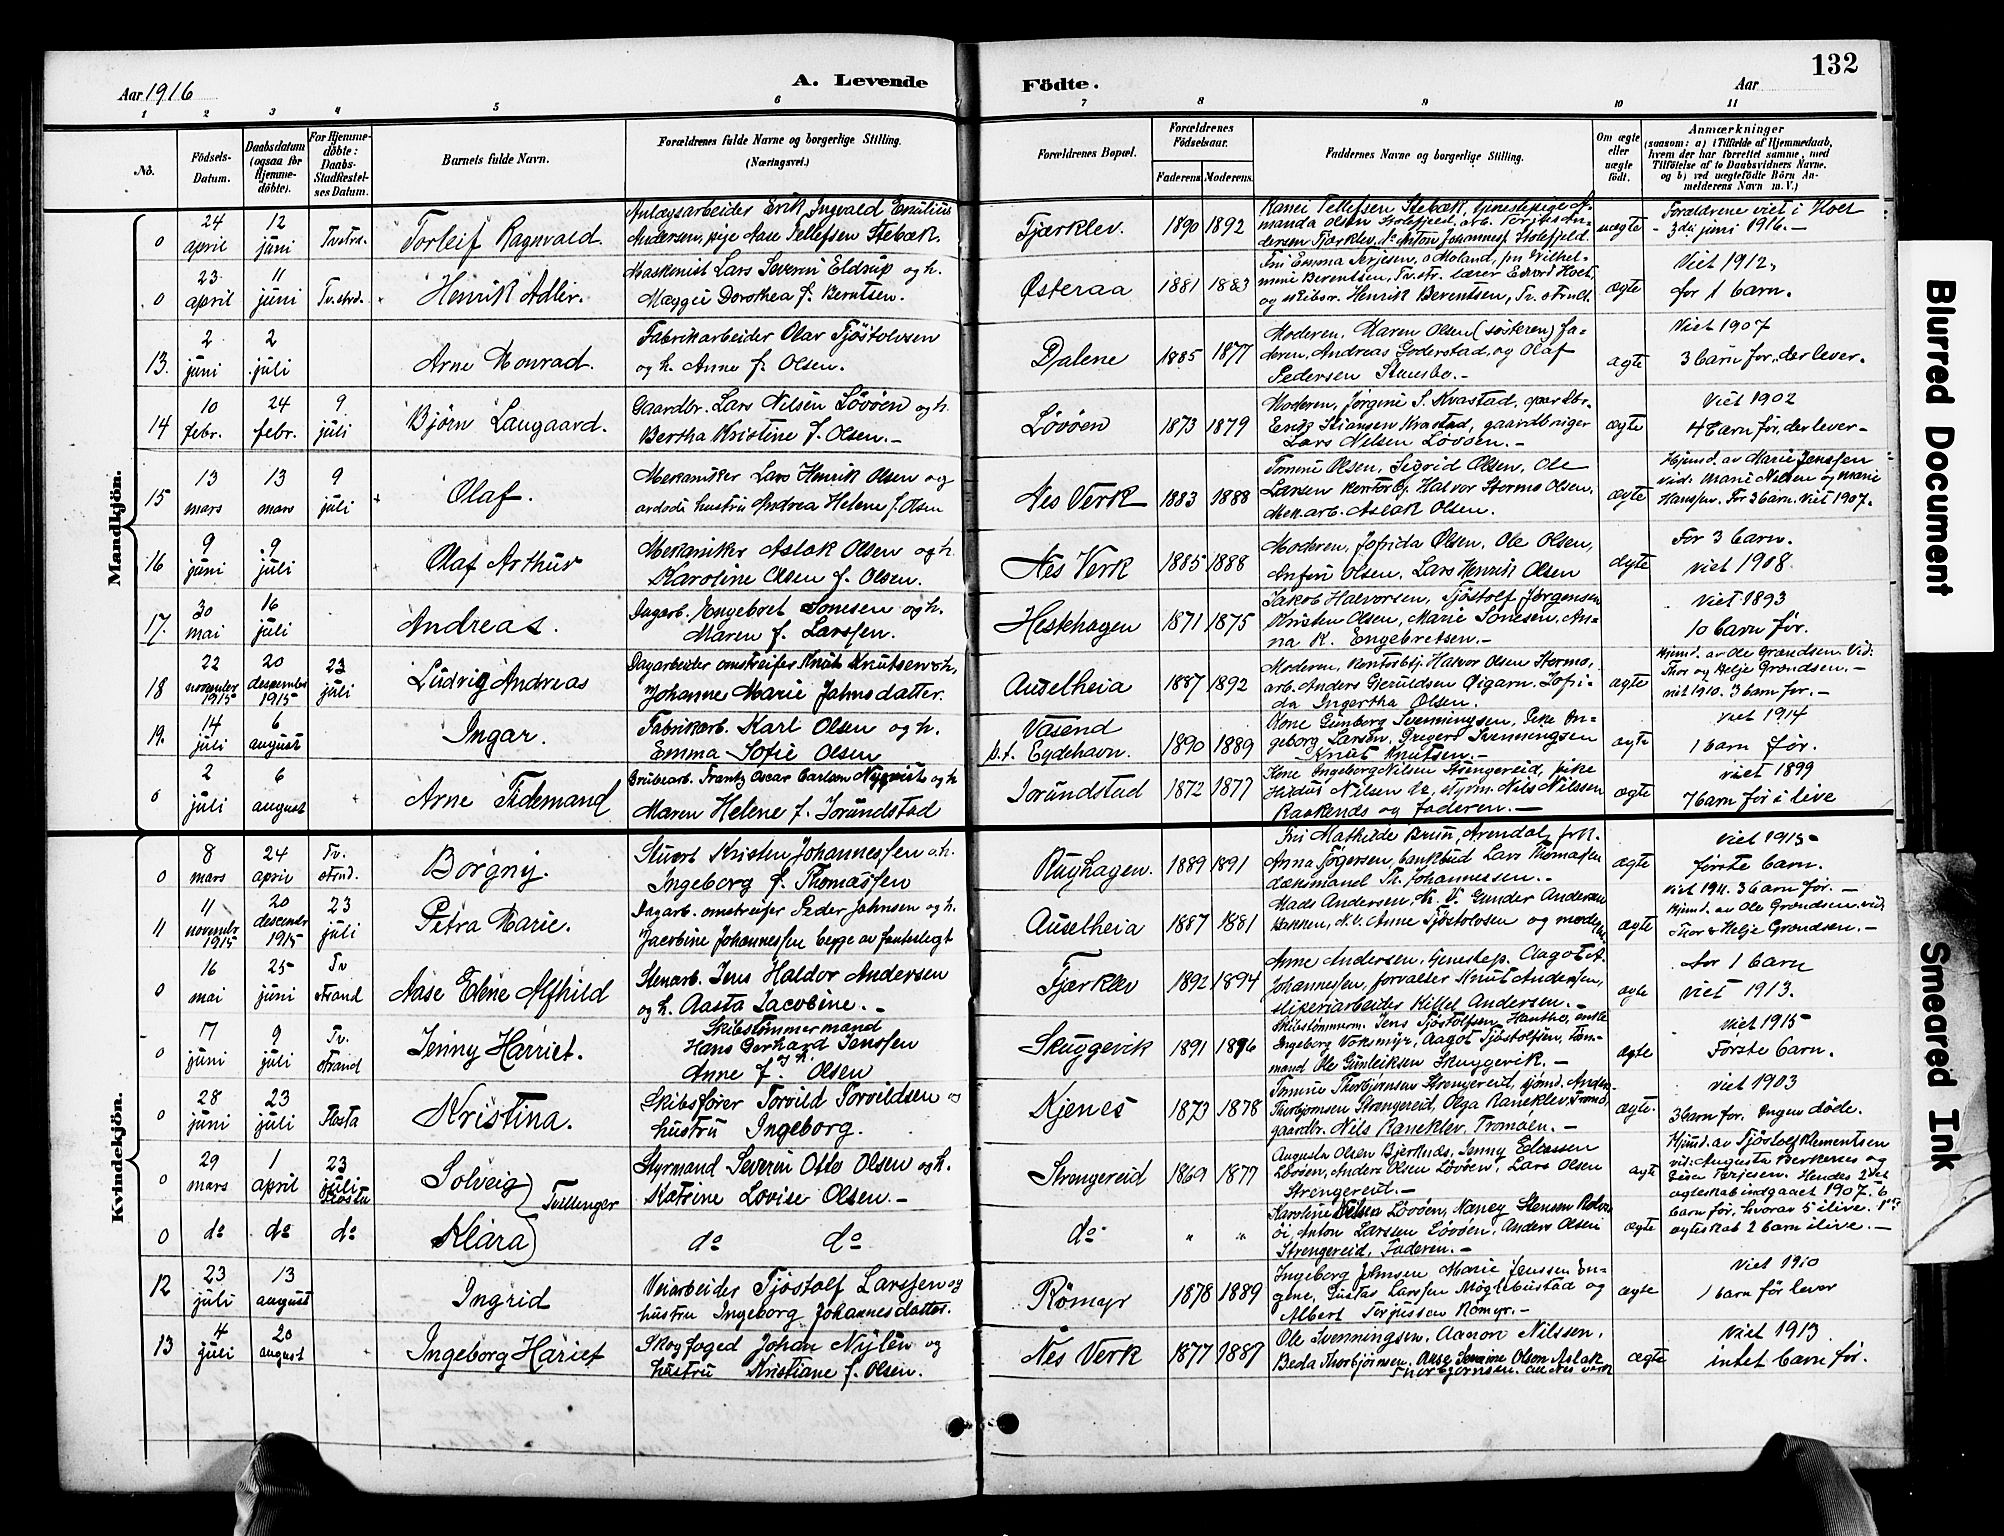 Aar 1916
A. Levende
Födte.
Aar
132
1 2 3 4 5 6 7 8 9 10 11
No.
Födsels-
Datum.
Daabsdatum
(ogsaa for
Hjemme-
döbte).
For Hjemme-
döbte:
Daabs-
Stadfæstel-
ses Datum.
Barnets fulde Navn.
Forældrenes fulde Navne og borgerlige Stilling.
(Næringsvei.)
Forældrenes Bopæl.
Forældrenes
Födselsaar.
Faderens. Moderens.
Faddernes Navne og borgerlige Stilling.
Om ægte
eller
uægte
födt.
Anmærkninger
(saasom: a) i Tilfælde af Hjemmedaab,
hvem der har forrettet samme, med
Tilföielse af to Daabsvidners Navne.
og b) ved uægtefödte Börn An-
melderens Navn m. V.)
Mandkjön.
0 24 april 12 juni Tv.strd. Torleif Ragnvald.
Anlægsarbeider Erik Ingvald Emilius
Andersen, pige Aase Tellefsen Stebæk.
Fjærklev. 1890 1892
uægte
Forældrene viet i Holt
- 3die juni 1916. -
0 23 april 11 juni Tv.strd. Henrik Adler.
Maskinist Lars Severin Eldrup og h.
Maggie Dorothea f. Berntsen.
Østeraa 1881 1883
og skibsr. Henrik Berentsen, Tv. strand.
ægte
Viet 1912,
for 1 barn.
13. 2 juni 2 juli Arne Konrad.
Fabrikarbeider Olav Tjöstolvsen
og h. Anne f. Olsen.
Dalene 1885 1877
Moderen, Maren Olsen (søsteren) fa-
deren, Andreas Goderstad, og Olaf
Pedersen Stuesbo. -
ægte
Viet 1907
3 barn før, der lever-
14 10 febr. 24 febr. 9 juli Björn Laugaard.
Gaardbr. Lars Nilsen Lövöen og h.
Bertha Kristine f. Olsen. -
Lövöen 1873 1879
Lars Nilsen Lövöen. -
ægte
Viet 1902
4 barn før, der lever -
15 13 mars 13 mars 9 juli Olaf.
Mekaniker Lars Henrik Olsen og
avdöde hustru Andrea Helene f. Olsen
Nes Verk 1883 1888
Tomine Olsen, Sigrid Olsen, Ole
Larsen kontorbg. Halvor Stormo Olsen.
Mek.arb. Aslak Olsen.
ægte
Hjemd. av Marie Jenssen
vid: Marie Nilsen og Marie
Hanssen. For 3 barn. Viet 1907.
16 9 juni 9 juli Olaf Arthur
Mekaniker Aslak Olsen og h.
Karoline Olsen f. Olsen.
Nes Verk 1885 1888
Moderen, Jofrida Olsen, Ole Olsen,
Anfin Olsen, Lars Henrik Olsen
ægte
For 3 barn.
viet 1908.
17. 30 mai 16 juli Andreas.
Dagarb. Engebret Sonesen og h.
Maren f. Larssen.
Heskhagen 1871 1875
Jakob Halvorsen, Tjöstolf Jørgensen
Kristen Olsen, Marie Sonesen, An-
na K. Engebretsen. -
Viet 1893
10 barn før.
18 22 november 1915 20 descember 1915 23 juli Ludvig Andreas
Dagarbeider omstreifer Knut Knutsen og h.
Johanne Marie Jahnsdatter.
Auselheia 1887 1892
Moderen, kontorbg. Halvor Olsen Stormo,
arb. Anders Gjeruldsen Øigarn. Jofri-
da Ingertha Olsen.
ægte
Hjemd. av Ole Grondsen. Vid:
Thor og Helje Grondsen. -
viet 1910. 3 barn før. -
19. 14 juli 6 august Ingar.
Fabrikarb. Karl Olsen og h.
Emma Sofie Olsen
Vasend
p.t. Eydehavn. 1890 1889
Kone Gunborg Svenningsen, Pike In-
geborg Larsen, Gregers Svenningsen
Knut Knutsen. -
ægte
viet 1914
1 barn før.
0 2 juli 6 august Arne Tidemand
Grubearb. Frantz Oscar Carlsen Nyqvist og h
Maren Helene f. Jorundstad
Jorundstad 1872 1877
Kone Ingeborg Nilsen Strengereid, pike
Raakenes og faderen. -
ægte
viet 1899
7 barn før i live
Kvindekjön.
0 8 mars 24 april Tv. strnd. Borgny.
Stuert Kristen Johannessen o.h.
Ingeborg f. Thomassen
Rughagen. 1889 1891
Fru Mathilde Bruu, Arendal, frk.
Anna Sögersen, bankbud Lars Thomassen
dæksmand Th. Johannessen. -
ægte
Viet 1915
første barn.
11 11 november 1915 20 descember 1915 23 juli Petra Marie.
Dagarb. omstreifer Peder Jahnsen og h.
Jacobine Johannessen begge av fanteslegt
Auselheia 1887 1881
Mads Andersen, N. V. Gunder Andersen
Bakken, N.V. Anne Tjöstolvsen og moderen.
ægte
Viet 1911. 3 barn før. -
Hjemd. av Ole Grondsen. vid:
Thor & Helje Grondsen. -
0 16 mai 25 juni Tv strand Aase Elene Alfhild
Stenarb. Jens Haldor Andersen
og h. Aasta Jacobine. -
Fjærklev 1892 1894
Anne Andersen, Genestap, Aagot A.
Johannessen, forvalter Knut Andersen,
sliperiarbeider Kittel Andersen. -
ægte
for 1 barn
viet 1913.
0 17 juni 9 juli Tv. strand Jenny Harriet.
Skibstömmermand
Hans Gerhard Jenssen
og h.
Anne f. Olsen
Skuggevik 1891 1896
Skibstömmerm. Jens Tjöstolfsen Hanthe, enke
Ingeborg Voksmyr, Aagot Tjöstolfsen, Töm-
mand Ole Gunleiksen Skuggevik. -
ægte
Viet 1915
Første barn.
0 28 juni 23 juli Flosta Kristina.
Skibsfører Torvild Torvildsen og
hustru Ingeborg.
Kjenes 1873 1878
Thorbjørnsen Strengereid, Olga Raneklev, Tromö,
gaardbr. Nils Raneklev, Tromöen. -
ægte.
viet 1903
3 barn før. Ingen døde.
0 29 mars 1 april 23 juli Flosta Solveig
Tvillinger
Styrmand Severin Otto Olsen og h.
Katrine Lovise Olsen -
Strengereid 1869 1877
Augusta Olsen Bjerkenes, Jenny Eliassen
Lövöen, Anders Olsen Lövöen, Lars Olsen
Strengereid. -
ægte
Hjemd. av Tjöstolf Klementsen
vid: Augusta Berkenes og
Lisa Terjesen. Hendes 2det
egteskab indgaaet 1907. 6
barn før, hvorav 5 i live. 1ste
egteskab 2 barn i live. -
0 do do do Klara
do do
do " "
Karoline Nilsen Lövöen, Nancy Stensen
Anton Larssen Lövöen, Anders Olsen
Strengereid, Faderen. -
ægte
12 23 juli 13 august Ingrid
Veiarbeider Tjöstolf Larssen og
hustru Ingeborg Johannesdatter.
Römyr 1878 1889
Ingeborg Johnsen Marie Jenssen En-
gene, Gustav Larssen Möglebustad og
Albert Terjussen Römyr. -
ægte
Viet 1910
1 barn før lever
13 4 juli 20 august Ingeborg Hariet
Skogfoged Johan Nylén og
hustru Kristiane f. Olsen.
Nes Verk 1877 1887
Ole Svenningsen. Aanon Nilssen.
Beda Thorbjörnsen. Aase Severine Olsen Aslak
Thorbjørnsen. alle Nes verk
ægte
Viet 1913
intet barn før.
Blurred Document
Smeared Ink